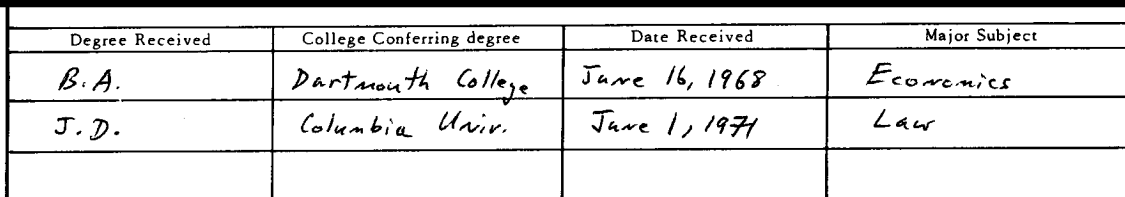 Degree Received College Conferring degree Date Received Major Subject
B.A. Dartmouth College June 16, 1968 Economics
J.D. Columbia Univ. June 1, 1971 Law